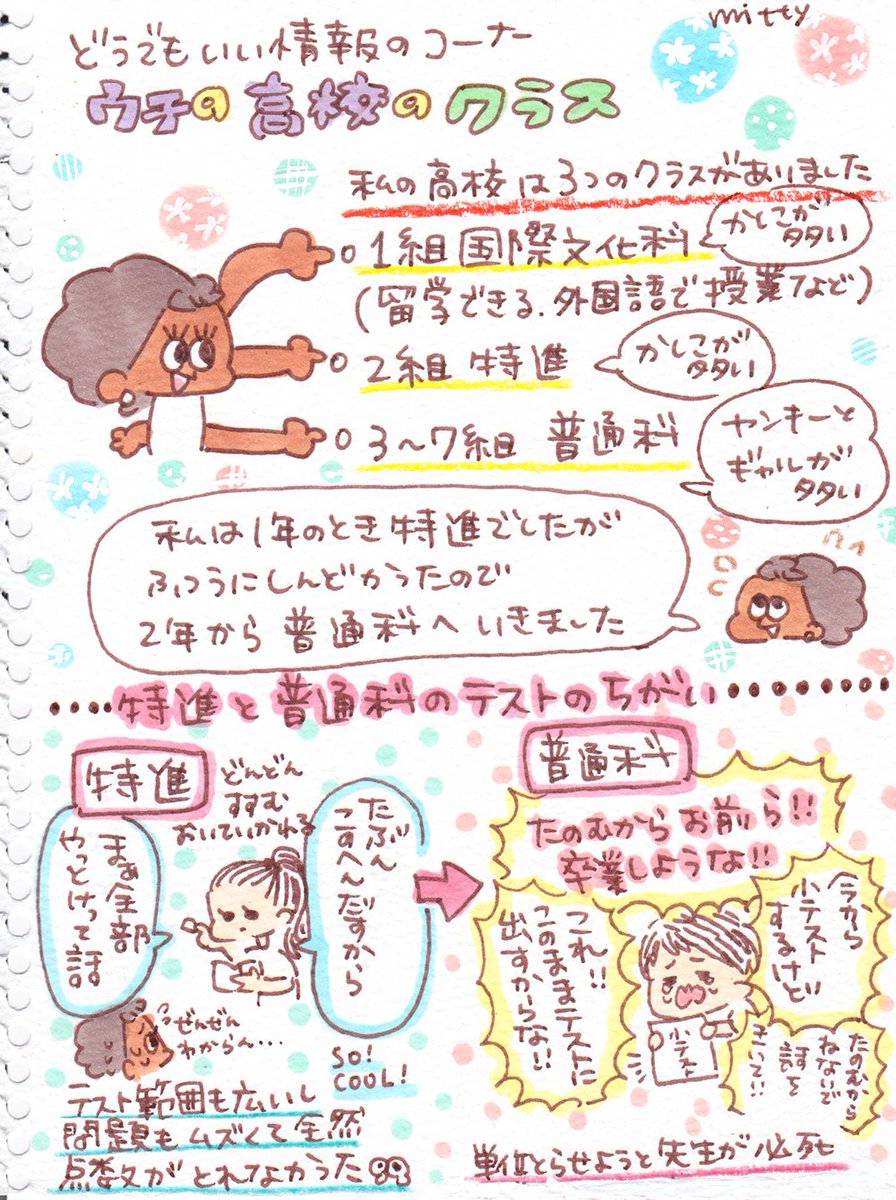 mitty
どうでもいい情報のコーナー
ウチの高校のクラス
私の高校は3つのクラスがありました
1組 国際文化科
かしこが
多い
(留学できる.外国語で授業など)
2組 特進
かしこが
多い
3〜7組 普通科
ヤンキーと
ギャルが
多い
私は1年のとき特進でしたが
ふつうにしんどかったので
2年から普通科へいきました
特進と普通科のテストのちがい
特進
どんどん
すすむ
おいていかれる
たぶん
こすへんだすから
まぁ全部
やっとけって話
ぜんぜん
わからん…
SO!
COOL!
テスト範囲も広いし
問題もムズくて全然
点数がとれなかった
普通科
たのむからお前ら!!
卒業しような!!
今から
小テスト
するけど
これ!!
このままテストに
出すからな!!
小テスト
たのむから
ねないで
話を
きいて!!
単位とらせようと先生が必死